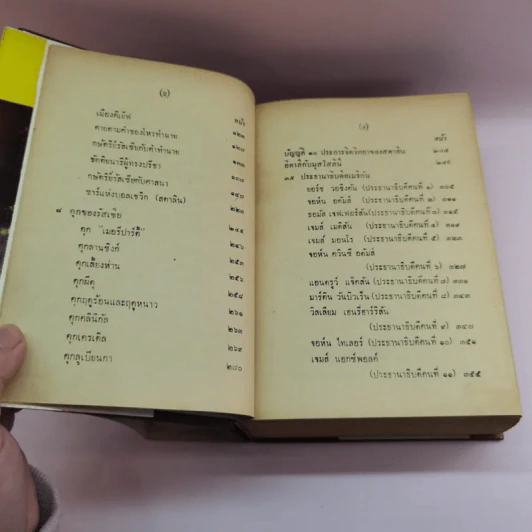 (๑)
หน้า
เมืองคิเย้ฟ ๑๒๓
ตายตามคำของโหรทำนาย
กษัตริย์รัสเซียกับคำทำนาย
ขัตติยนารีผู้ทรงปรีชา
กษัตริย์รัสเซียกับศาสนา
ซาร์แห่งบอลเชวิค (สตาลิน)
๘ คุกของรัสเซีย
คุก "เมอรีปาร์ตี้"
คุกลานซิงก์
คุกเสียงห่าน
คุกผีดุ ๒๕๖
คุกฤดูร้อนและฤดูหนาว ๒๕๘
คุกคลินิกัล ๒๖๑
คุกเครเคิล ๒๖๓
คุกลูเบียนกา ๒๘๐
หน้า
บัญญัติ ๑๐ ประการจิตวิทยาของสตาลิน ๒๘๕
อิตาลีกับมุสโสลินี
๓๕ ประธานาธิบดีอเมริกัน
ยอร์ช วอชิงตัน (ประธานาธิบดีที่ ๑) ๓๐๕
จอห์น อดัมส์ (ประธานาธิบดีที่ ๒) ๓๑๑
ธอมัส เจฟเฟอร์สัน (ประธานาธิบดีที่ ๓) ๓๑๕
เจมส์ เมดิสัน (ประธานาธิบดีที่ ๔)
เจมส์ มอนโร (ประธานาธิบดีที่ ๕) ๓๒๓
จอห์น ควินซี อดัมส์
(ประธานาธิบดีคนที่ ๖) ๓๒๗
แอนดรูว์ แจ็คสัน (ประธานาธิบดีคนที่ ๗)
มาร์ติน วันบิวเร็น (ประธานาธิบดีคนที่ ๘) ๓๔๓
วิลเลียม เฮนรี่ฮาร์ริสัน
(ประธานาธิบดีคนที่ ๙) ๓๔๘
จอห์น ไทเลอร์ (ประธานาธิบดีคนที่ ๑๐) ๓๕๑
เจมส์ นอกซ์พอลค์
(ประธานาธิบดีคนที่ ๑๑) ๓๕๕